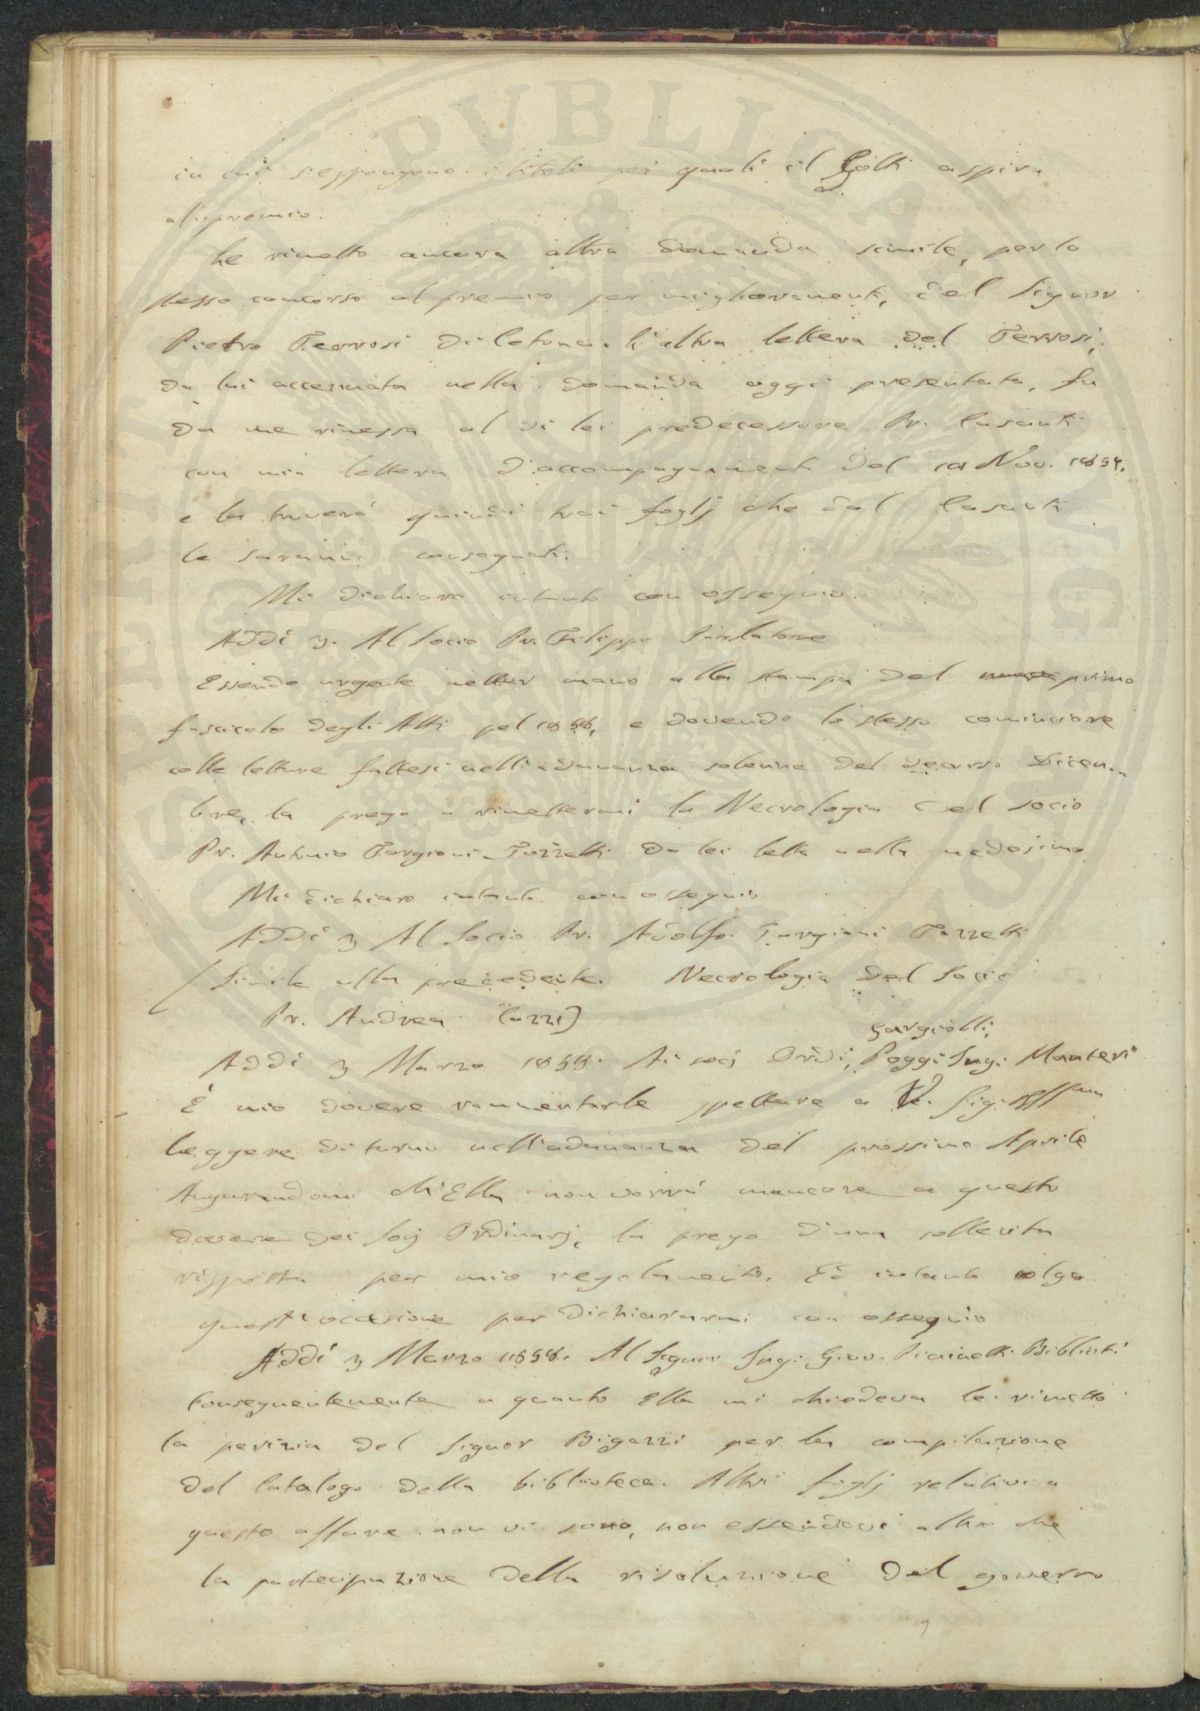 in cui s'espongono i titoli pei quali il Golti aspira
al premio.
Le rimetto ancora altra domanda simile, per lo
stesso concorso al premio per miglioramenti, del Signor
Pietro Ferrosi di Cetona. L'altra lettera del Ferrosi,
da lui accennata nella domanda oggi presentata, fu
da me rimessa al di lei predecessore Pr. Casanti
con mia lettera d'accompagnamento del Nov. 1857.
e la troverà quindi trai foglj che dal Casanti
le saranno consegnati.
Mi dichiaro intanto con ossequio.
Addì 3. Al Socio Pr. Filippo Parlatore
Essendo urgente metter mano alla stampa del primo
fascicolo degli Atti pel 1858, e dovendo lo stesso cominciare
colle letture fattesi nell'adunanza solenne del decorso Dicem-
bre, la prego a rimettermi la Necrologia del socio
Pr. Antonio Targioni-Tozzetti da lei letta nella medesima.
Mi dichiaro intanto con ossequio
Addì 3 Al Socio Pr. Adolfo Targioni Tozzetti
(Simile alla precedente. Necrologia del Socio
Pr. Andrea Cozzi)
Gargiolli,
Addì 3 Marzo 1858. Ai socj Ordi, Poggi Ing. Manteri
È mio dovere rammentarle spettare a V. Sig.
leggere di turno nell'adunanza del prossimo Aprile
Augurandomi ch'Ella non vorrà mancare a questo
dovere dei Socj Ordinarj, la prego d'una sollecita
risposta per mio regolamento. Ed intanto colgo
quest'occasione per dichiararmi con ossequio
Addì 3 Marzo 1858. Al Signor Ing: Giov. Piainelli Bibliot:
Conseguentemente a quanto Ella mi chiedeva le rimetto
la perizia del Signor Bigazzi per la compilazione
del Catalogo della biblioteca. Altri foglj relativi a
questo affare non vi sono, non essendovi altro che
la partecipazione della risoluzione del governo